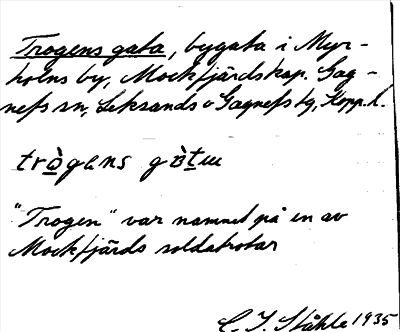 Trogens gata, bygata i Myr-
holns by, Mockfjärds kap. Gag-
nefs sn, Leksands o Gagnefs tg, Kopp. l.
trògens gòtu
"Trogen" var namnet på en av
Mockfjärds soldatrotar
C. I. Ståhle 1935